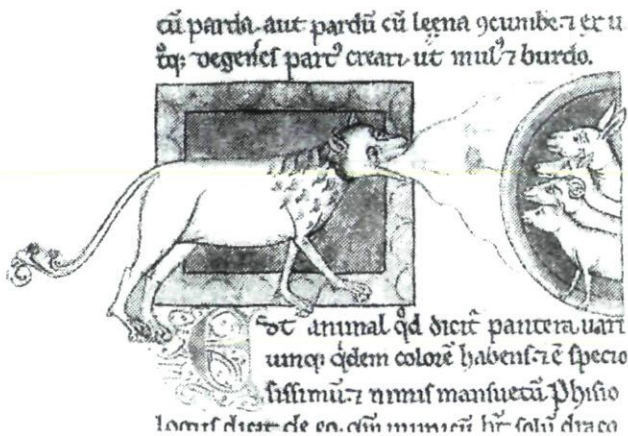 cū parda. aut pardū cū leęna ꝯcumbe. ⁊ ex u
degeneſ part᾽ creari. ut mul᾽ ⁊ burdo.
Eſt animal qd̄ dicit᷑ pantera. uari
quidem colorē habenſ. ⁊ ē ſpecio
ſiſſimū. ⁊ nimiſ manſuetū. Phiſio
loguſ dicit de eo. inimicū solū draco